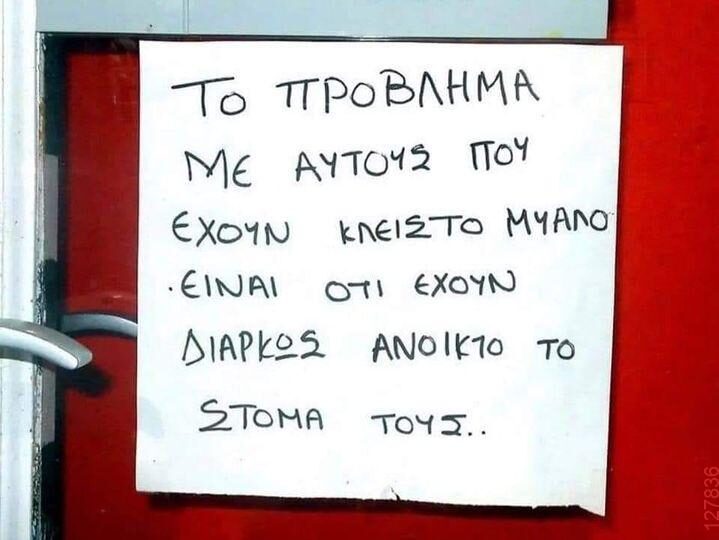 ΤΟ ΠΡΟΒΛΗΜΑ
ΜΕ ΑΥΤΟΥΣ ΠΟΥ
ΕΧΟΥΝ ΚΛΕΙΣΤΟ ΜΥΑΛΟ
.ΕΙΝΑΙ ΟΤΙ ΕΧΟΥΝ
ΔΙΑΡΚΩΣ ΑΝΟΙΚΤΟ ΤΟ
ΣΤΟΜΑ ΤΟΥΣ..
127836